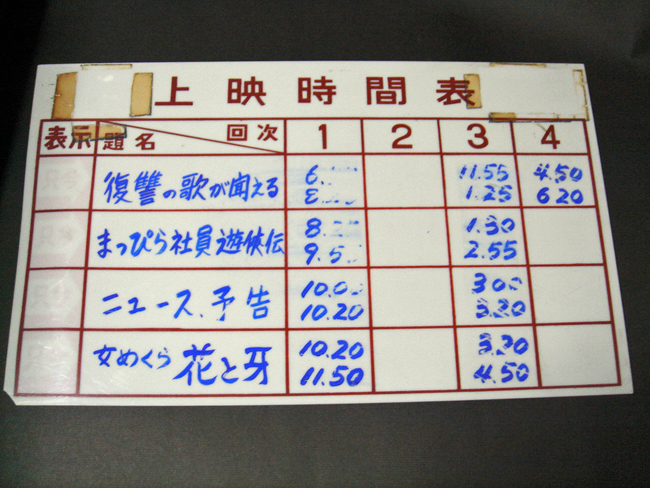 上映時間表
表示 題名 回次 1 2 3 4
復讐の歌が聞える 11.55 4.50
1.25 6.20
まっぴら社員遊侠伝 1.30
2.55
ニュース、予告 10.00 3.00
10.20 3.20
女めくら 花と牙 10.20 3.20
11.50 4.50